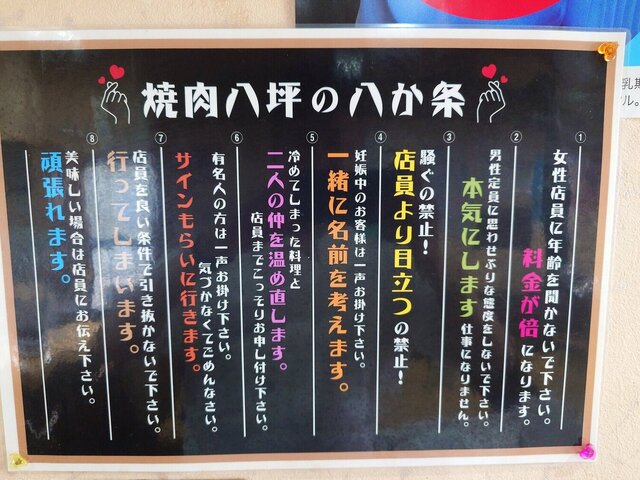 焼肉八坪の八か条
①
女性店員に年齢を聞かないで下さい。
料金が倍になります。
②
男性定員に思わせぶりな態度をしないで下さい。
本気にします仕事になりません。
③
騒ぐの禁止!
店員より目立つの禁止!
④
妊娠中のお客様は一声お掛け下さい。
一緒に名前を考えます。
⑤
冷めてしまった料理と
二人の仲を温め直します。
店員までこっそりお申し付け下さい。
⑥
有名人の方は一声お掛け下さい。
気づかなくてごめんなさい。
サインもらいに行きます。
⑦
店員を良い条件で引き抜かないで下さい。
行ってしまいます。
⑧
美味しい場合は店員にお伝え下さい。
頑張れます。
乳期
ル。